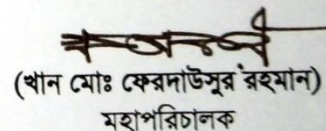 (খান মোঃ ফেরদাউসুর রহমান)
মহাপরিচালক